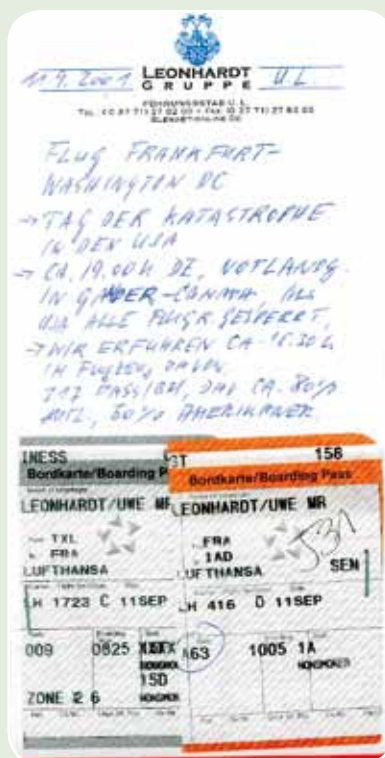 11.9.2001 LEONHARDT U.L.
GRUPPE
FÜHRUNGSSTAB U.L.
FLUG FRANKFURT-
WASHINGTON DC
→ TAG DER KATASTROPHE
IN DEN USA
→ CA. 19.00 h DZ, NOTLANDG.
IN GANDER-CANADA, ALS
USA ALLE FLUGH. GESPERRT,
→ WIR ERFUHREN CA. 16.30 h
IM FLUGZEUG,
PASS
50% AMERIKANER
INESS
Bordkarte/Boarding P
LEONHARDT/UWE MR
TXL
FRA
LUFTHANSA
LH 1723 C 11SEP
009 0825
15D
ZONE 2 6
156
Bordkarte/Boarding Pass
LEONHARDT/UWE MR
FRA
IAD
LUFTHANSA SEN
LH 416 D 11SEP
A63 1005 1A
NONSMOKER